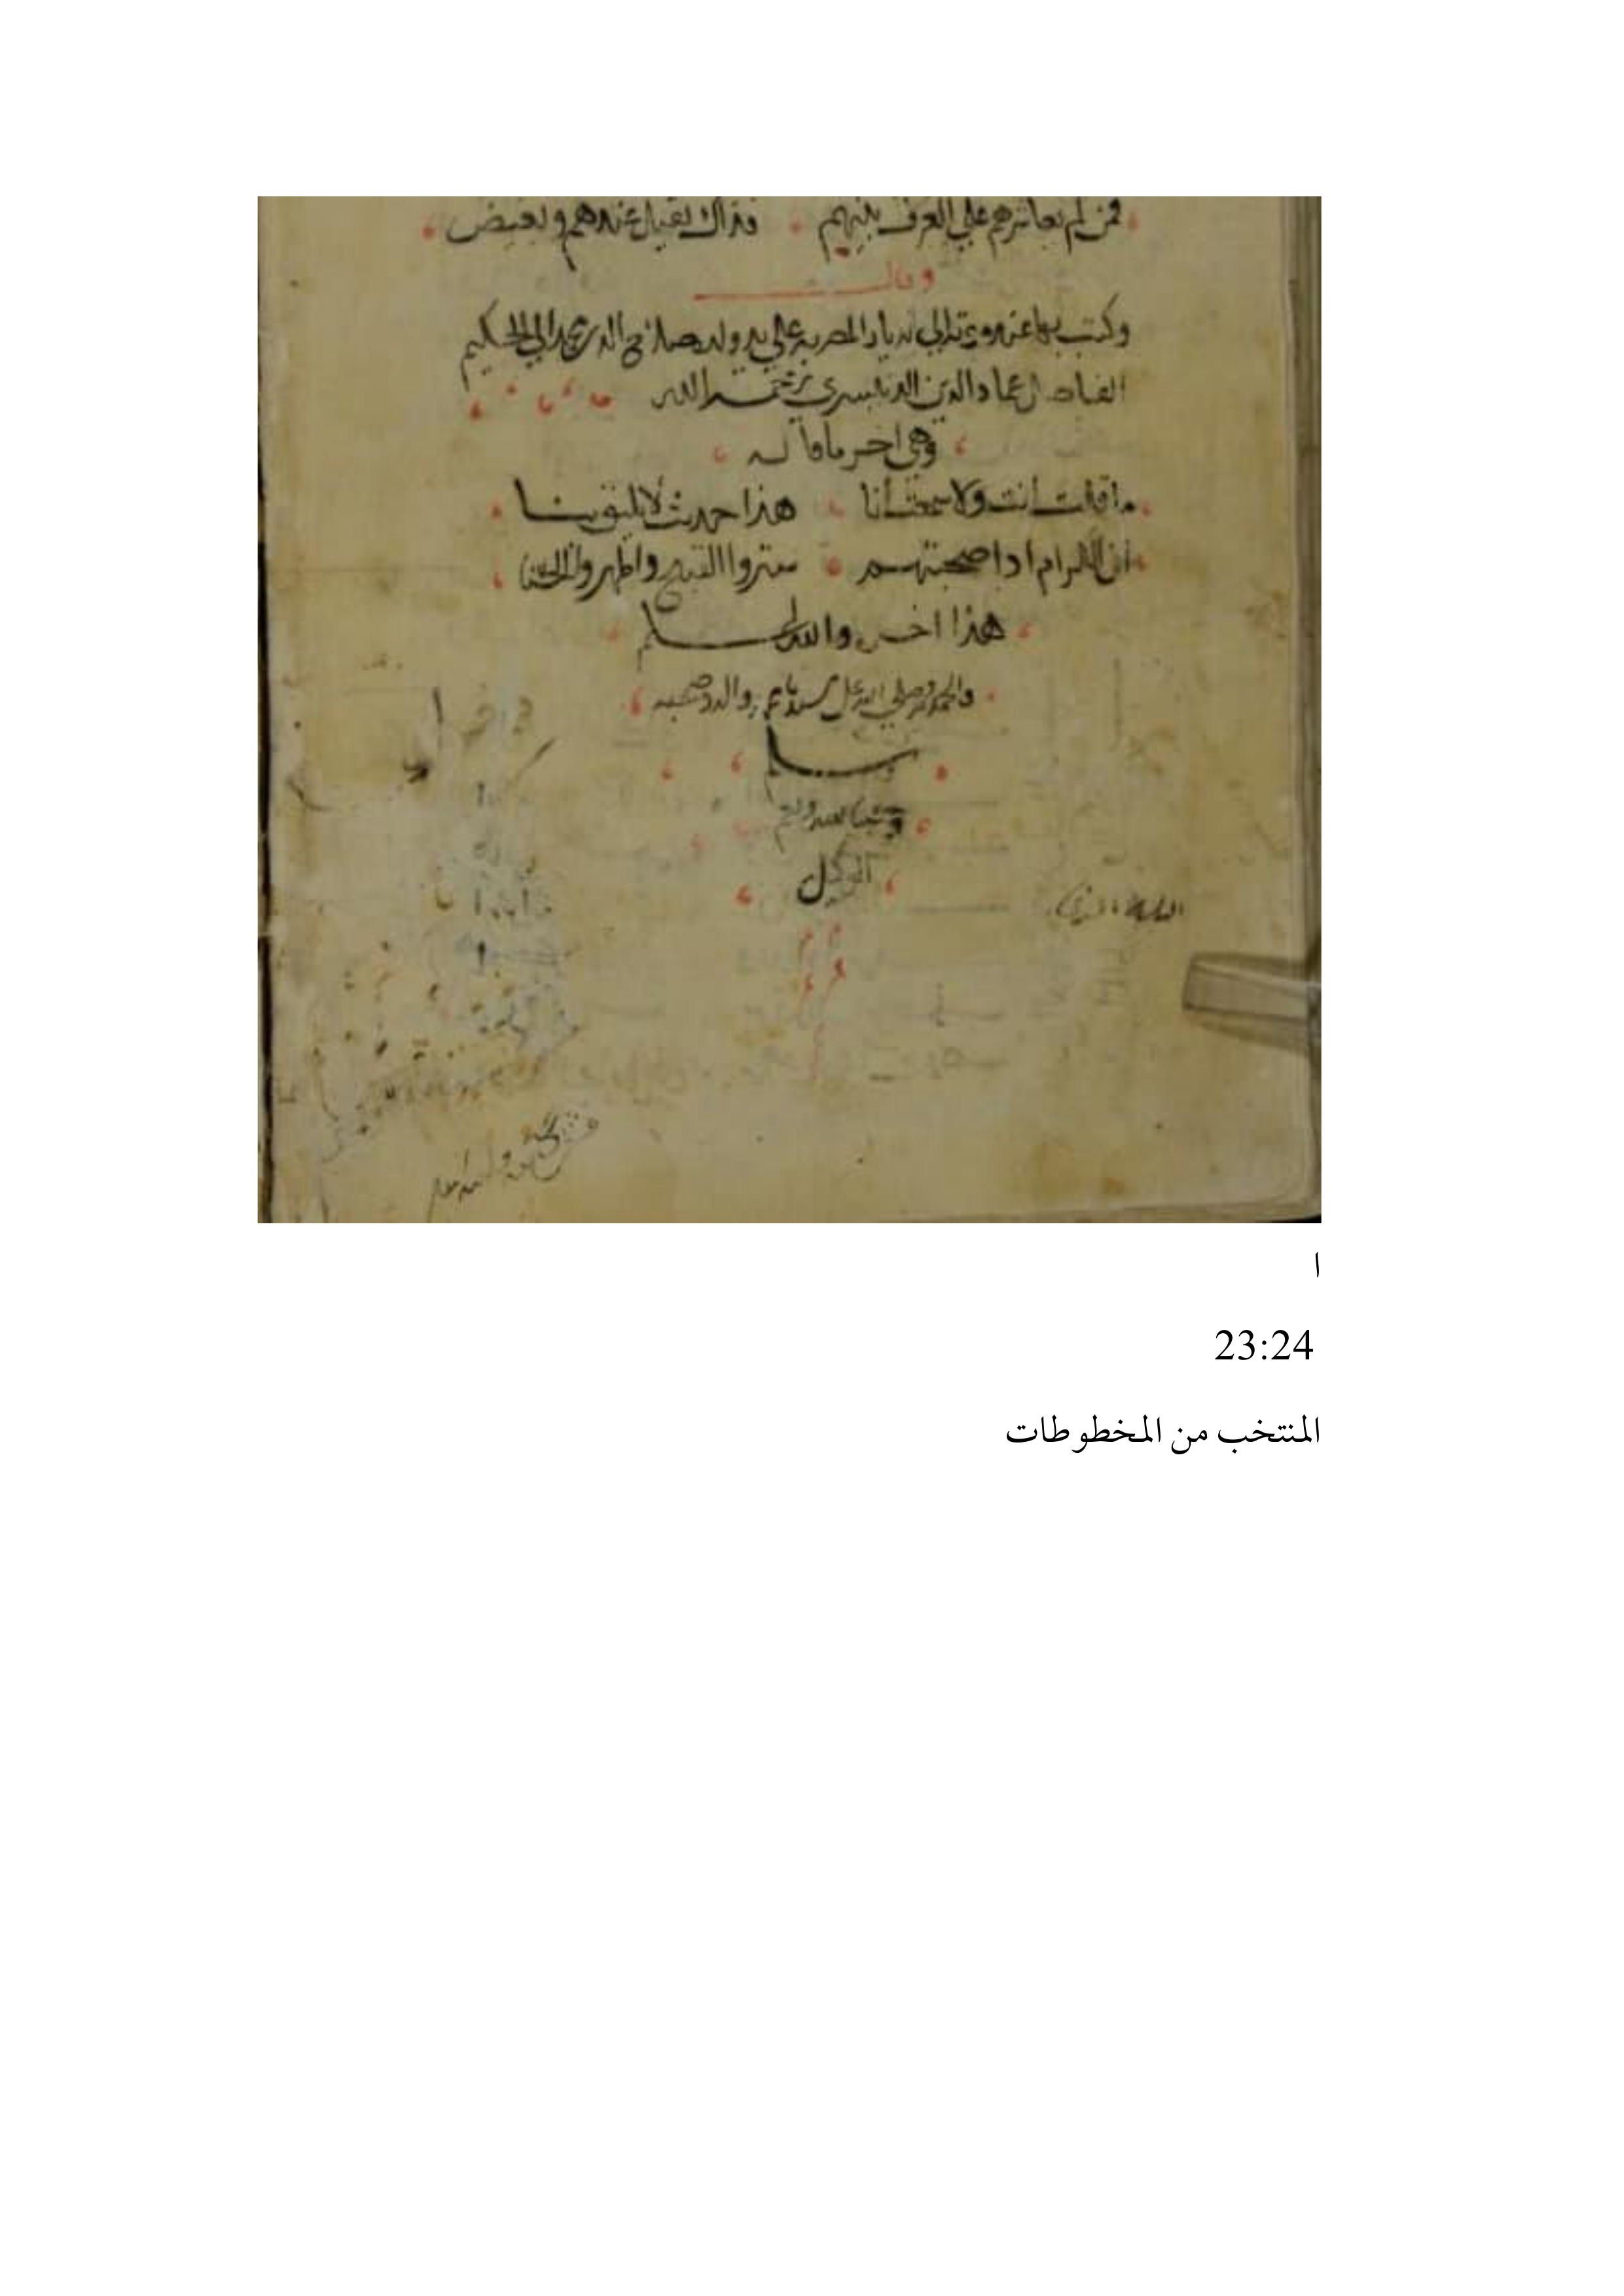 فمن لم يعاشرهم على العرف بينهم فذاك ثقيل عندهم وبغيض
وقال
وكتب بها عند موته الي الديار المصرية على يد ولده صلاح الدين محمد الي الحكيم
الفاضل عماد الدين الدنيسري رحمه الله
وهي اخر ما قاله
ما قلت أنت ولا سمعت أنا هذا حديث لا يليق بنا
ان الكرام اذا صحبتهم ستروا القبيح واظهروا الحسنا
هذا اخره والله اعلم
والحمد لله وصلى الله على سيدنا محمد واله وصحبه
وسلم
وحسبنا الله ونعم
الوكيل
ا
23:24
المنتخب من المخطوطات